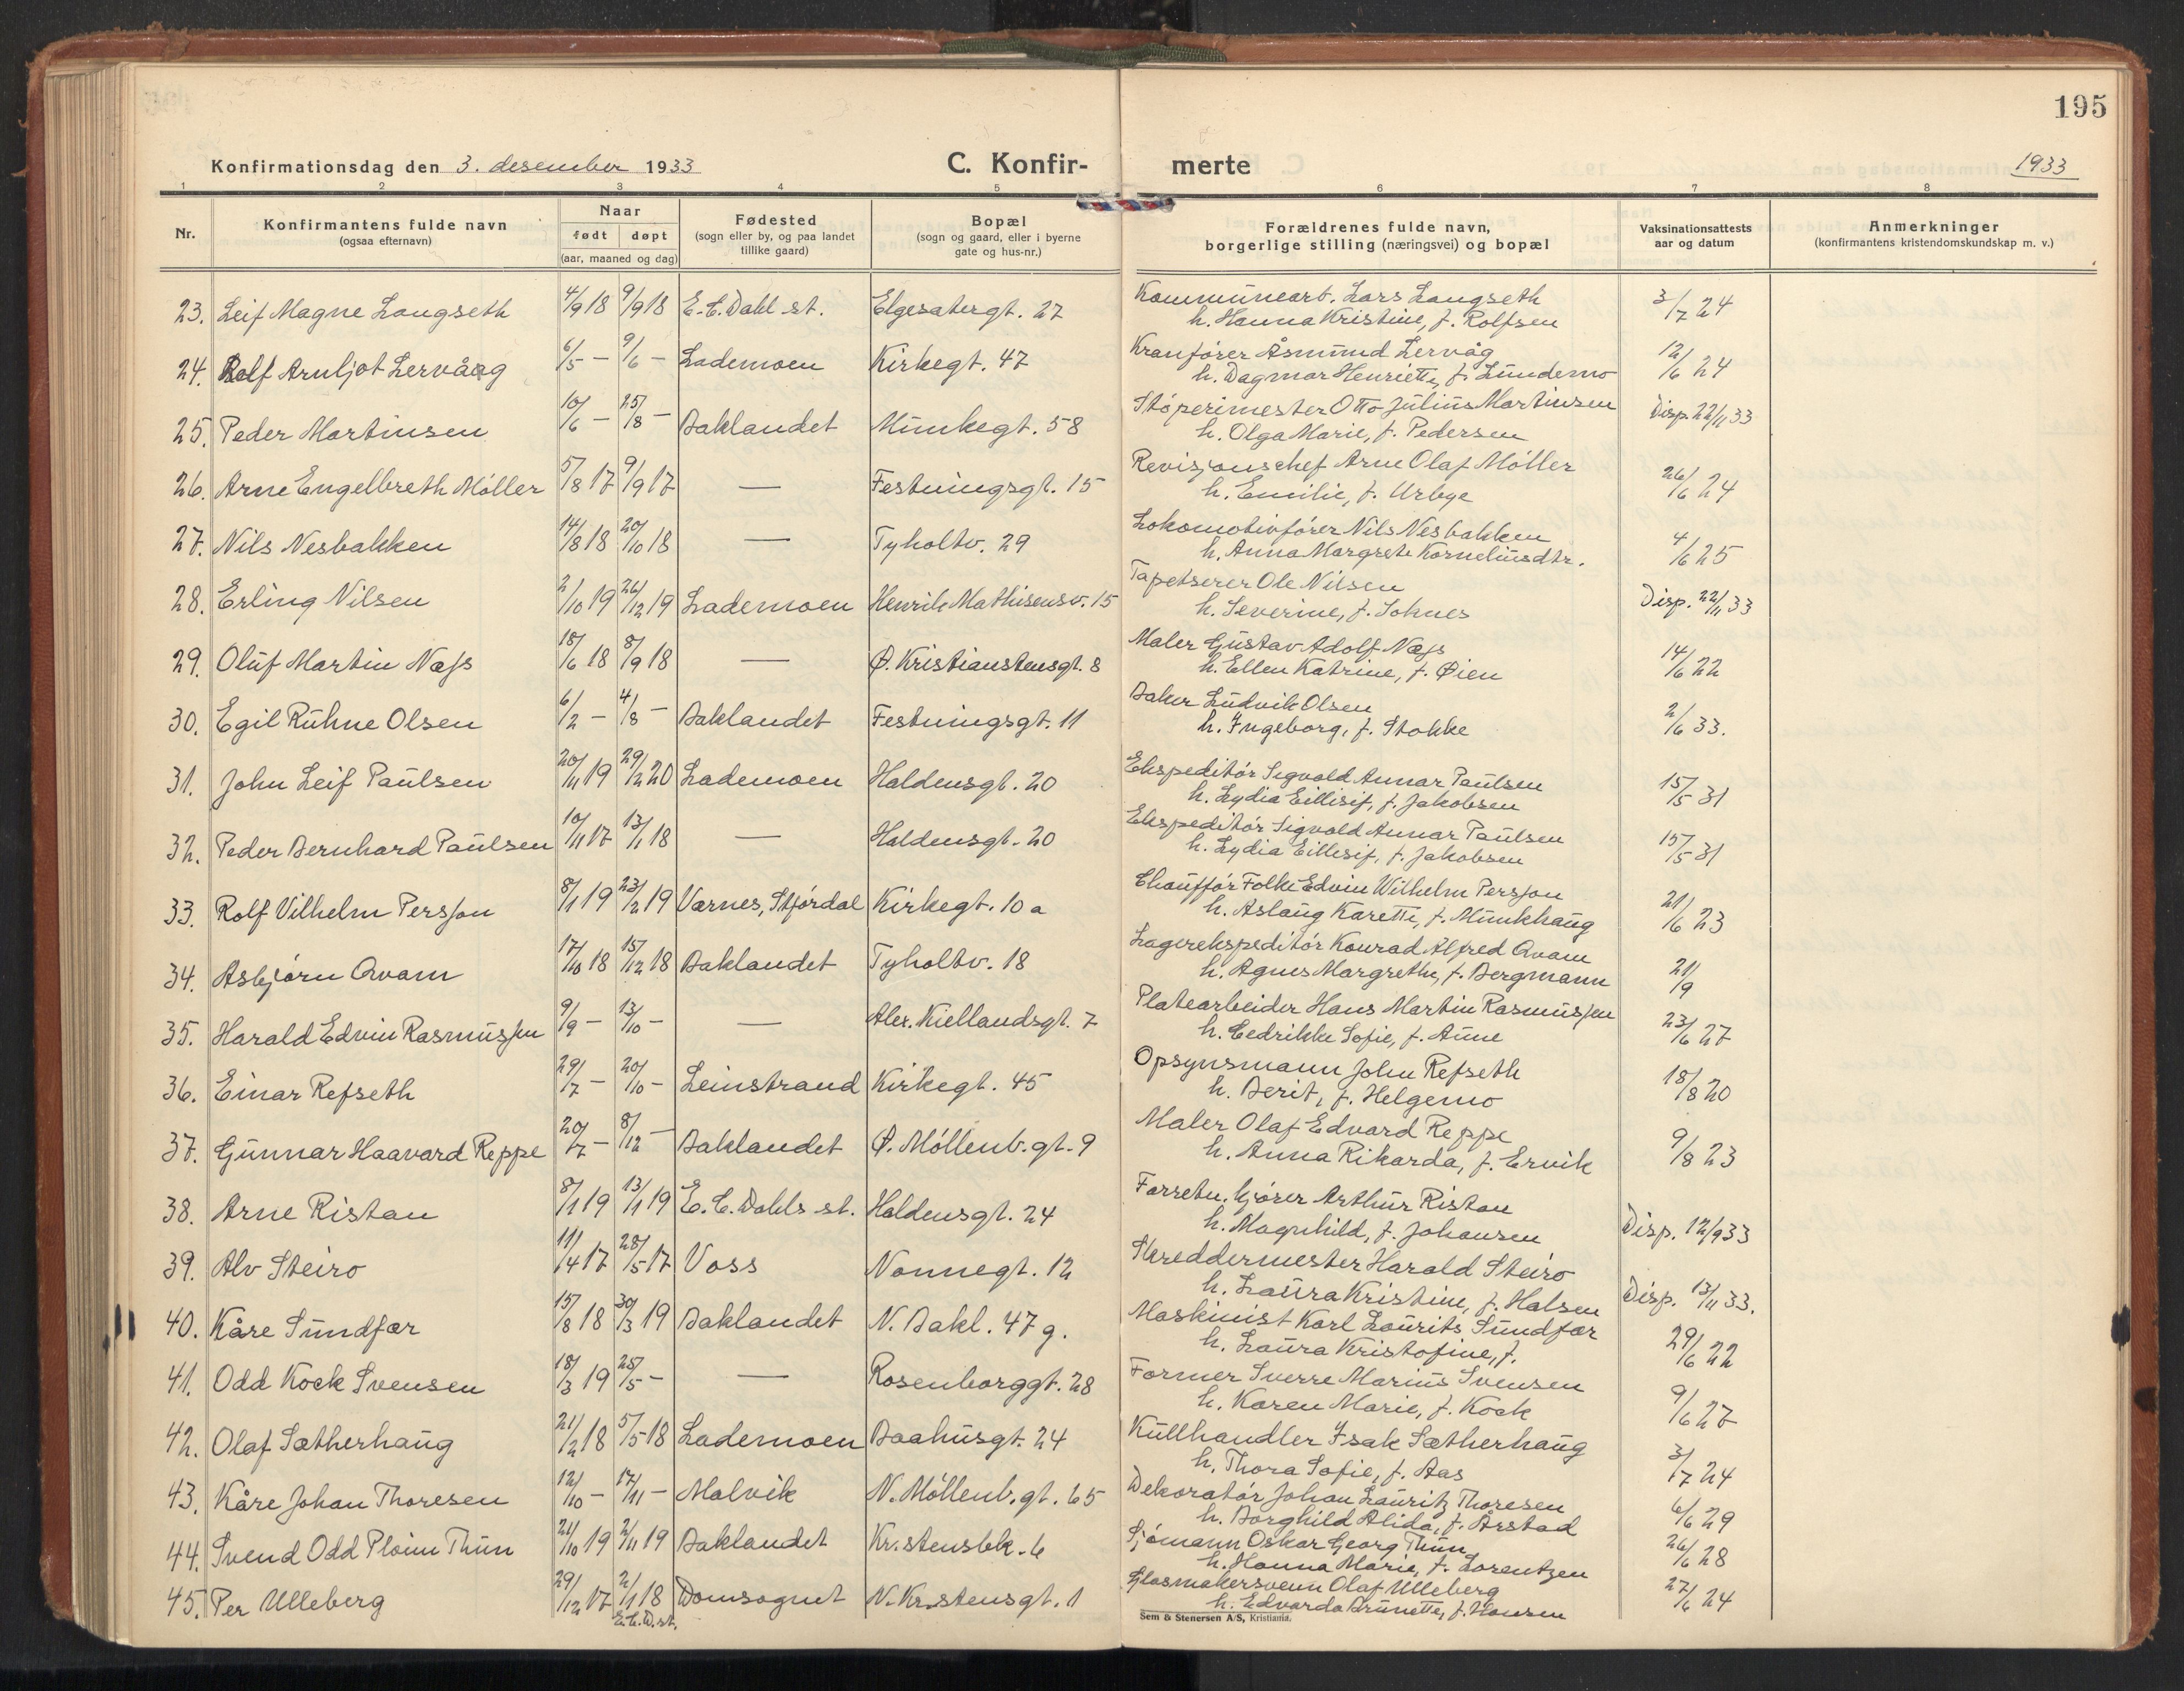 195
Konfirmationsdag den 3. desember 1933
C. Konfir-
merte
1933
1 2 3 4 5 6 7 8
Nr.
Konfirmantens fulde navn
(ogsaa efternavn)
Naar
født døpt
(aar, maaned og dag)
Fødested
(sogn eller by, og paa landet
tillike gaard)
Bopæl
(sogn og gaard, eller i byerne
gate og hus-nr.)
Forældrenes fulde navn,
borgerlige stilling (næringsvei) og bopæl
Vaksinationsattests
aar og datum
Anmerkninger
(konfirmantens kristendomskundskap m. v.)
23. Leif Magne Langseth 4/9 18 9/9 18 E.C. Dahl st. Elgesatergt. 27 Kommunearb. Lars Langseth 3/7 24
h. Hanna Kristine, f. Rolfsen
24. Rolf Arnljot Lervåg 6/5 — 9/6 — Lademoen Kirkegt. 47 Kranfører Åsmund Lervåg 12/6 24
h. Dagmar Henriette, f. Lundemo
25. Peder Martinsen 10/6 — 25/8 — Baklandet Munkegt. 58 Støperimester Otto Julius Martinsen Disp. 22/11 33
h. Olga Marie, f. Pedersen
26. Arne Engelbreth Møller 5/8 17 9/9 17 — Festningsgt. 15 Revisjonschef Arne Olaf Møller 26/6 24
h. Emilie, f. Urbye
27. Nils Nesbakken 14/8 18 20/10 18 — Tyholtv. 29 Lokomotivfører Nils Nesbakken 4/6 25
h. Anna Margrete Korneliusdtr.
28. Erling Nilsen 2/10 19 26/12 19 Lademoen Henrik Mathisensv. 15 Tapetserer Ole Nilsen Disp. 22/11 33
h. Severine, f. Soknes
29. Oluf Martin Næss 18/6 18 8/9 18 — Ø. Kristianstensgt. 8 Maler Gustav Adolf Næss 14/6 22
h. Ellen Katrine, f. Øien
30. Egil Rühne Olsen 6/2 — 4/8 — Baklandet Festningsgt. 11 Baker Ludvik Olsen 2/6 33.
h. Ingeborg, f. Stokke
31. John Leif Paulsen 20/11 19 29/2 20 Lademoen Haldensgt. 20 Ekspeditør Sigvald Annar Paulsen 15/5 31
h. Lydia Eillisif, f. Jakobsen
32. Peder Bernhard Paulsen 10/11 17 13/1 18 — Haldensgt. 20 Ekspeditør Sigvald Annar Paulsen 15/5 31
h. Lydia Eillisif, f. Jakobsen
33. Rolf Vilhelm Persson 8/1 19 23/2 19 Værnes, Stjørdal Kirkegt. 10a Chauffør Folke Edvin Wilhelm Persson 21/6 23
h. Aslaug Karette, f. Munkhaug
34. Asbjørn Qvam 17/10 18 15/12 18 Baklandet Tyholtv. 18 Lagerekspeditør Konrad Alfred Qvam 21/9
h. Agnes Margrethe, f. Bergmann
35. Harald Edvin Rasmussen 9/9 — 13/10 — — Alex. Kiellandsgt. 7 Platearbeider Hans Martin Rasmussen 23/6 27
h. Cedrikke Sofie, f. Aune
36. Einar Refseth 29/7 — 20/10 — Leinstrand Kirkegt. 45 Opsynsmann John Refseth 18/8 20
h. Berit, f. Helgemo
37. Gunnar Haavard Reppe 20/7 — 8/12 — Baklandet Ø. Møllenb. gt. 9 Maler Olaf Edvard Reppe 9/8 23
h. Anna Rikarda, f. Ervik
38. Arne Ristan 8/1 19 13/1 19 E.C. Dahls st. Haldensgt. 24 Forretn. kjører Arthur Ristan Disp. 12/9 33
h. Magnhild, f. Johansen
39. Alv Steiro 11/4 17 28/5 17 Voss Nonnegt. 12 Skreddermester Harald Steiro Disp. 13/11 33.
h. Laura Kristine, f. Halsen
40. Kåre Sundfær 15/8 18 30/3 19 Baklandet N. Bakl. 47 g. Maskinist Karl Laurits Sundfær 29/6 22
h. Laura Kristofine, f.
41. Odd Kock Svensen 18/3 19 25/5 — — Rosenborggt. 28 Former Sverre Marius Svensen 9/6 27
h. Karen Marie, f. Kock
42. Olaf Sætherhaug 21/2 18 5/5 18 Lademoen Baahusgt. 24 Kullhandler Isak Sætherhaug 3/7 24
h. Thora Sofie, f. Aas
43. Kåre Johan Thoresen 12/10 — 17/11 — Malvik N. Møllenb. gt. 65 Dekoratør Johan Lauritz Thoresen 6/6 29
h. Borghild Alida, f. Årstad
44. Svend Odd Thun 21/10 19 2/11 19 Baklandet Kr.stensbk. 6 Sjømann Oskar Georg Thun 26/6 28
h. Hanna Marie, f. Lorentzen
45. Per Ulleberg 29/12 17 2/1 18 Domsognet N. Kr.stensgt. 1 Glasmakersvenn Olaf Ulleberg 27/6 24
E.C.D. st. h. Edvarda Brunette, f. Hansen
Sem & Stenersen A/S, Kristiania.